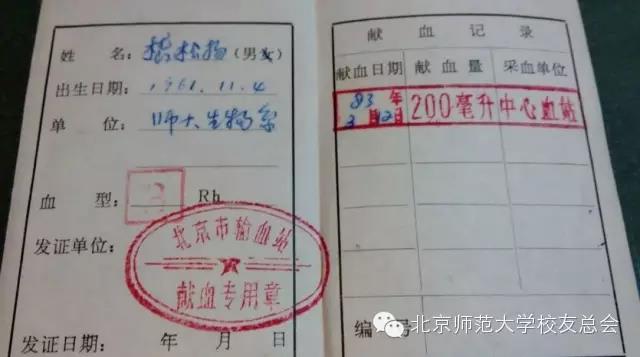 姓 名： (男女)
出生日期：1961.11.4
单 位：师大生物系
血 型： Rh
发证单位：
北京市输血站
献血专用章
发证日期： 年 月 日
献 血 记 录
献血日期 献血量 采血单位
83年 200毫升 中心血站
3月12日
编 号
北京师范大学校友总会